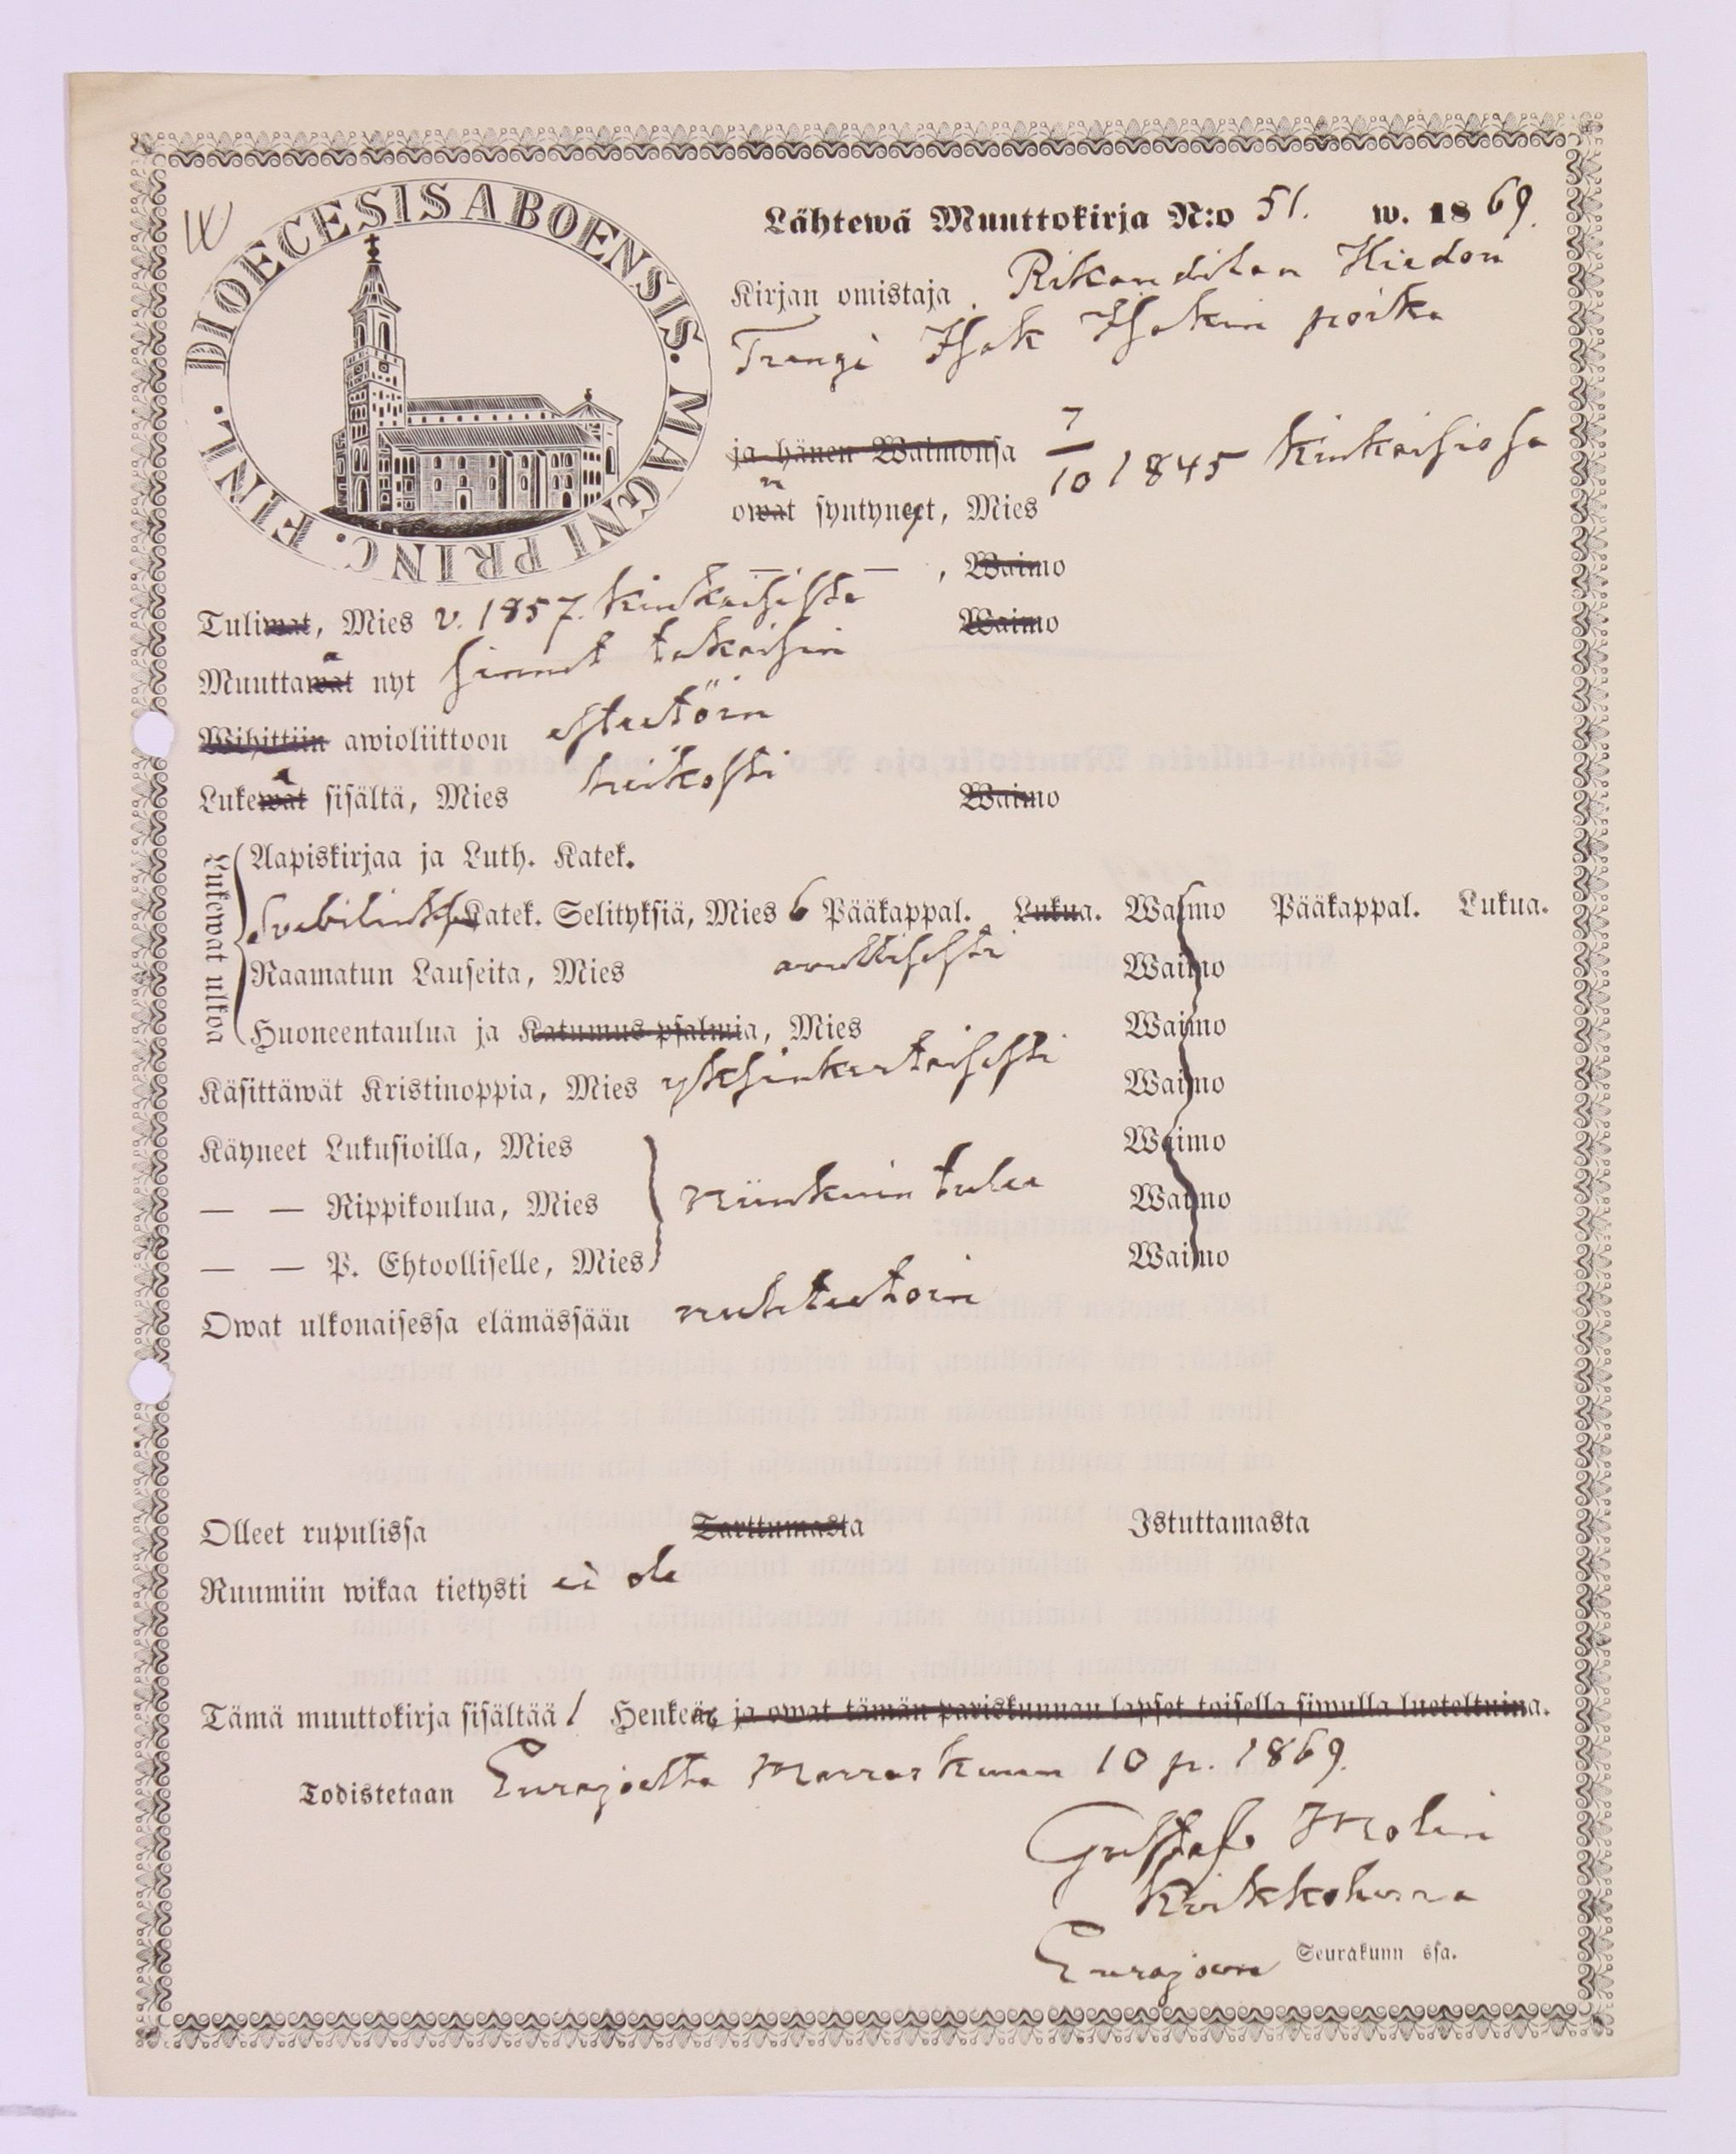 DIOECESIS ABOENSIS. MAGNI PRINC. FINL.
Lähtewä Muuttokirja N:o 51. w. 1869.
Kirjan omistaja Rikandilan Hiedon
Trengi Isak Isakin poika
ja hänen Waimonsa
owat syntyneet, Mies 7/10 1845 Kiukaisissa
— — , Waimo
Tuliwat, Mies v. 1857. Kiukaisista Waimo
Muuttawat nyt sinnet takaisin
Wihittiin awioliittoon esteetöin
Lukewat sisältä, Mies heikosti Waimo
Lukewat ulkoa
Aapiskirjaa ja Luth. Katek.
Katek. Selityksiä, Mies 6 Pääkappal. Lukua. Waimo Pääkappal. Lukua.
Raamatun Lauseita, Mies avullisesti Waimo
Huoneentaulua ja Katumus-psalmia, Mies Waimo
Käsittäwät Kristinoppia, Mies yksinkertaisesti Waimo
Käyneet Lukusioilla, Mies Waimo
— — Rippikoulua, Mies niinkuin tulee Waimo
— — P. Ehtoolliselle, Mies Waimo
Owat ulkonaisessa elämässään nuhteetoin
Olleet rupulissa Tarttumasta Istuttamasta
Ruumiin wikaa tietysti ei ole
Tämä muuttokirja sisältää 1 Henkeä ja owat tämän pariskunnan lapset toisella siwulla lueteltuina.
Todistetaan Eurajoelta Marraskuun 10 p. 1869.
Gustaf Molin
Kirkkoherra
Eurajoen Seurakunn ssa.